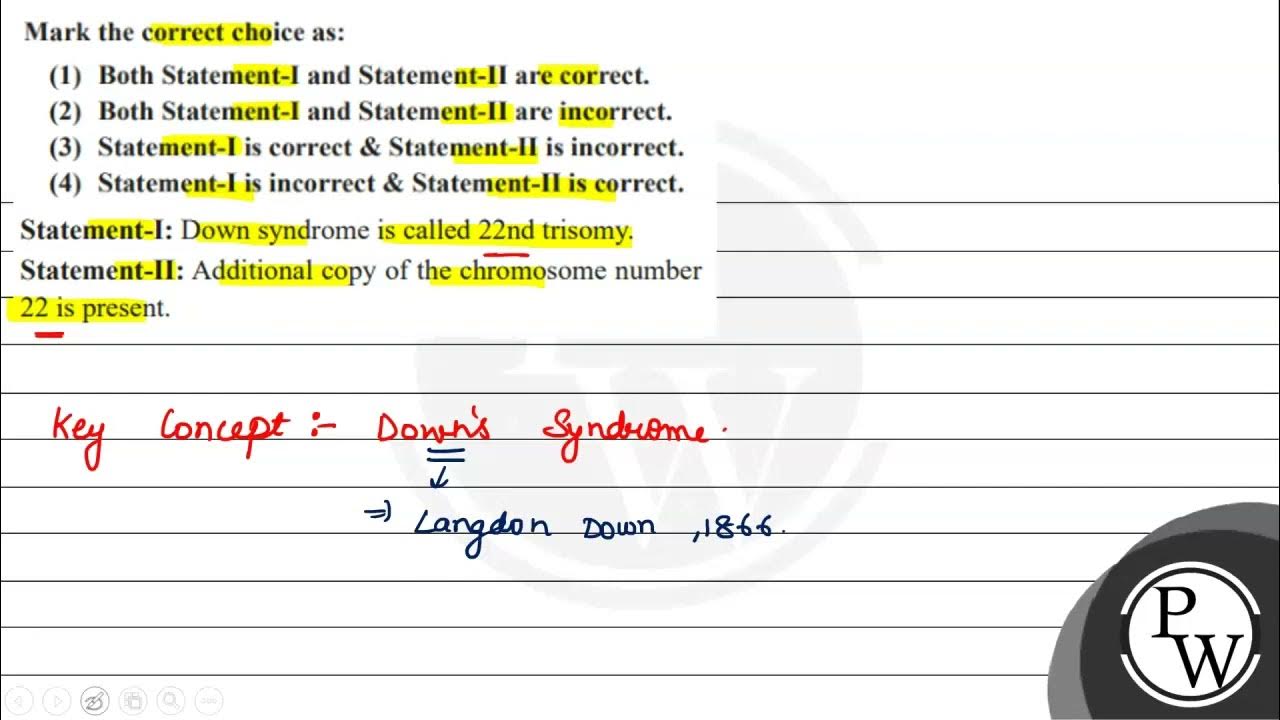 Mark the correct choice as:
(1) Both Statement-I and Statement-II are correct.
(2) Both Statement-I and Statement-II are incorrect.
(3) Statement-I is correct & Statement-II is incorrect.
(4) Statement-I is incorrect & Statement-II is correct.
Statement-I: Down syndrome is called 22nd trisomy.
Statement-II: Additional copy of the chromosome number
22 is present.
Key Concept :- Down's Syndrome.
⇒ Langdon Down, 1866.
PW